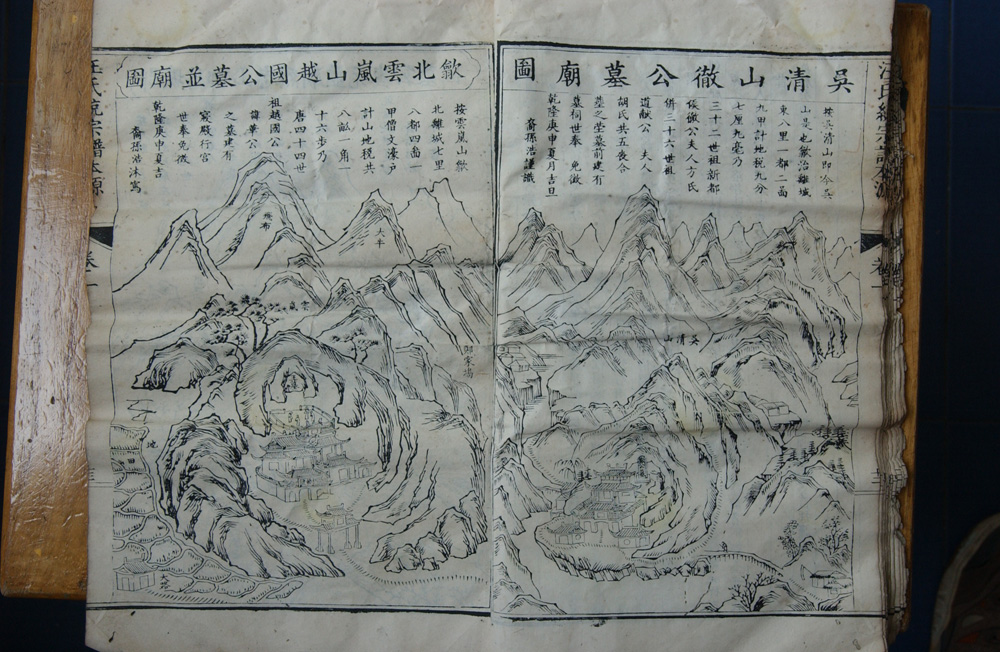 吳清山徽公墓廟圖
按吳清山即令吳
山是也歙治離城
東八里一都二啚
九甲計地稅九分
七厘九毫乃
三十二世祖新都
侯徽公夫人方氏
併三十六世祖
道献公 夫人
胡氏共五喪合
墓之塋墓前建有
墓祠世奉 免徵
乾隆庚申夏月吉旦
裔孫浩謹識
吳清山
歙北雲嵐山越國公墓並廟圖
按雲嵐山歙
北離城七里
八都四啚一
甲僧文濠户
計山地稅共
八畝一角一
十六步乃
唐四十四世
祖越國公
諱華公
之墓建有
寢殿行宮
世奉免徵
乾隆庚申夏吉
裔孫浩沐寫
飛布
大平
雲嵐
汪氏統宗譜本源
卷一